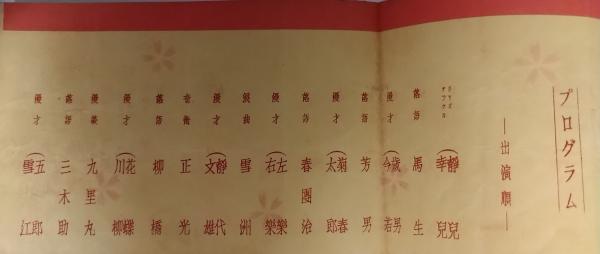 プログラム
―出演順―
静児
幸児
落語 馬生
漫才 歳男
今若
落語 芳男
漫才 菊春
太郎
落語 春團治
漫才 左樂
右樂
浪曲 雪洲
漫才 靜代
文雄
奇術 正光
落語 柳橋
漫才 花蝶
川柳
漫芸 九里丸
落語 三木助
漫才 五郎
雪江